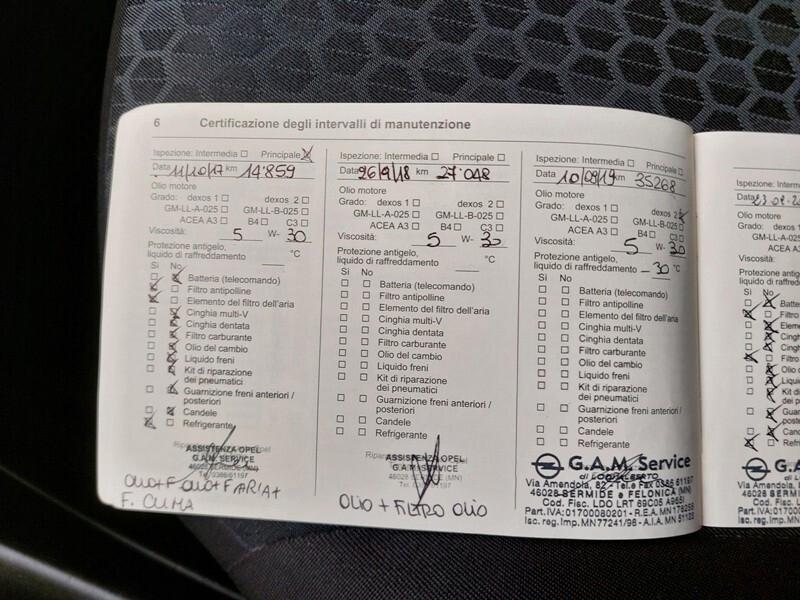 6 Certificazione degli intervalli di manutenzione
Ispezione: Intermedia Principale
Data 11/10/17 km 14'859
Olio motore
Grado: dexos 1 dexos 2
GM-LL-A-025 GM-LL-B-025
ACEA A3 B4 C3
Viscosità: 5 W- 30
Protezione antigelo,
liquido di raffreddamento °C
Sì No
Batteria (telecomando)
Filtro antipolline
Elemento del filtro dell'aria
Cinghia multi-V
Cinghia dentata
Filtro carburante
Olio del cambio
Liquido freni
Kit di riparazione
dei pneumatici
Guarnizione freni anteriori /
posteriori
Candele
Refrigerante
ASSISTENZA OPEL
G.A.M. SERVICE
46028 SERMIDE (MN)
Tel. 0386/61197
OLIO+F OLIO+F ARIA+
F. CLIMA
Ispezione: Intermedia Principale
Data 26/9/18 km 27'048
Olio motore
Grado: dexos 1 dexos 2
GM-LL-A-025 GM-LL-B-025
ACEA A3 B4 C3
Viscosità: 5 W- 30
Protezione antigelo,
liquido di raffreddamento °C
Sì No
Batteria (telecomando)
Filtro antipolline
Elemento del filtro dell'aria
Cinghia multi-V
Cinghia dentata
Filtro carburante
Olio del cambio
Liquido freni
Kit di riparazione
dei pneumatici
Guarnizione freni anteriori /
posteriori
Candele
Refrigerante
ASSISTENZA OPEL
G.A.M. SERVICE
46028 SERMIDE (MN)
OLIO + FILTRO OLIO
Ispezione: Intermedia Principale
Data 10/09/19 km 35268
Olio motore
Grado: dexos 1 dexos 2
GM-LL-A-025 GM-LL-B-025
ACEA A3 B4 C3
Viscosità: 5 W- 30
Protezione antigelo,
liquido di raffreddamento -30 °C
Sì No
Batteria (telecomando)
Filtro antipolline
Elemento del filtro dell'aria
Cinghia multi-V
Cinghia dentata
Filtro carburante
Olio del cambio
Liquido freni
Kit di riparazione
dei pneumatici
Guarnizione freni anteriori /
posteriori
Candele
Refrigerante
G.A.M. Service
Via Amendola, 82 - Tel. e Fax 0386 61197
46028 SERMIDE e FELONICA (MN)
Cod. Fisc. LDO LRT 69C05 A965I
Part. IVA: 01700080201 - R.E.A. MN
Iscr. reg. Imp. MN77241/96 - A.I.A. MN
Ispezione: Interm
Data
Olio motore
Grado: dexos 1
GM-LL-A-025
ACEA A3
Viscosità:
Protezione antigelo
liquido di raffredda
Sì No
Batteria
Filtro a
Eleme
Cingh
Cing
Filtro
Olio
Liqu
Kit d
dei p
Gua
post
Can
Refr
Via Amendo
46028
Cod.
Part. IVA: 0
Iscr. reg. Im